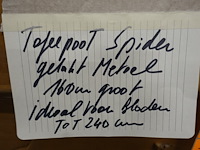 Tafelpoot Spider
gelakt Metael
160cm groot
ideaal voor bladen
ToT 240 cm